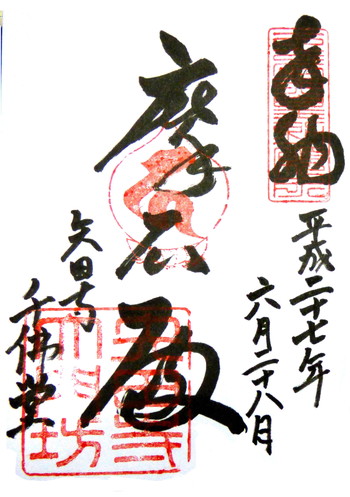 奉納
平成二十七年
六月二十八日
摩尼殿
矢田寺
千佛堂